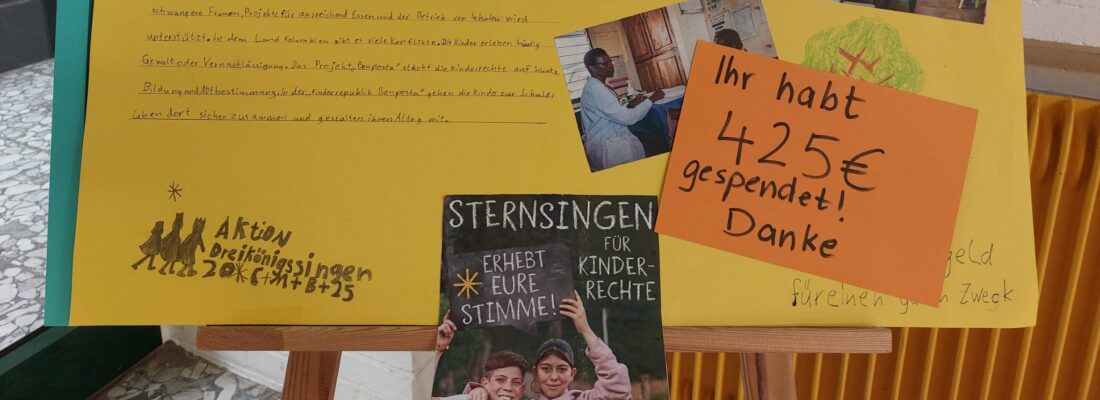 schwangere Frauen, Projekte für ausreichend Essen und der Betrieb von Schulen wird
unterstützt. In dem Land Kolumbien gibt es viele Konflikte. Die Kinder erleben häufig
Gewalt oder Vernachlässigung. Das Projekt „Benposta" stärkt die Kinderrechte auf Schutz,
Bildung und Mitbestimmung. In der „Kinderrepublik Benposta" gehen die Kinder zur Schule,
leben dort sicher zusammen und gestalten ihren Alltag mit.
Ihr habt
425€
gespendet!
Danke
Aktion
Dreikönigssingen
20*C+M+B+25
STERNSINGEN
FÜR
KINDER-
RECHTE
ERHEBT
EURE
STIMME!
geld
für einen Zweck